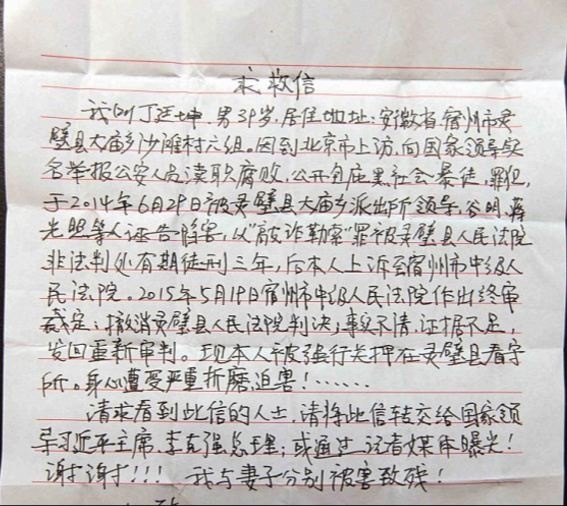 求救信
我叫丁廷坤,男39岁,居住地址:安徽省宿州市灵
璧县大庙乡沙滩村六组。因到北京市上访,向国家领导实
名举报公安人员渎职腐败,公开包庇黑社会暴徒,罪犯,
于2014年6月29日被灵璧县大庙乡派出所领导,谷明,蒋
光照等人诬告陷害,以“敲诈勒索”罪被灵璧县人民法院
非法判处有期徒刑三年,后本人上诉至宿州市中级人
民法院。2015年5月19日宿州市中级人民法院作出终审
裁定:撤消灵璧县人民法院判决;事实不清,证据不足,
发回重新审判。现本人被强行关押在灵璧县看守
所。身心遭受严重折磨,迫害!······
请求看到此信的人士,请将此信转交给国家领
导习近平主席,李克强总理;或通过记者媒体曝光!
谢谢!!! 我与妻子分别被害致残!